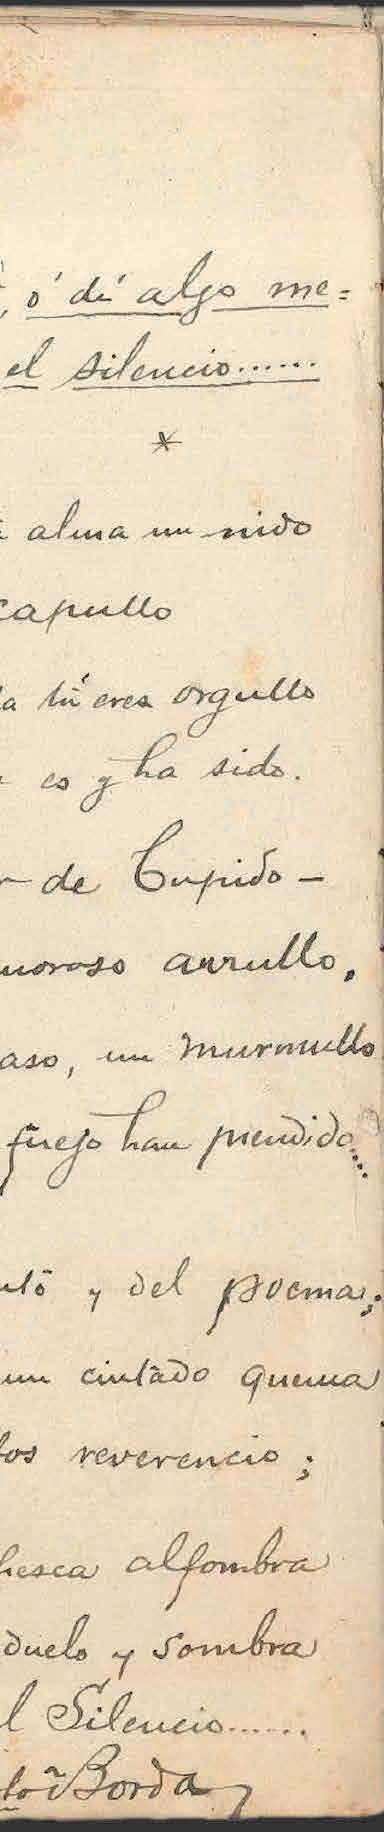 , ó dí algo me=
el silencio......
*
alma un nido
capullo
a tú eres orgullo
es y ha sido.
de Cupido —
moroso arrullo,
aso, un murmullo
fuego han prendido....
y del poema;
un cintado quema
los reverencio;
hesca alfombra
duelo y sombra
l Silencio......
Borda